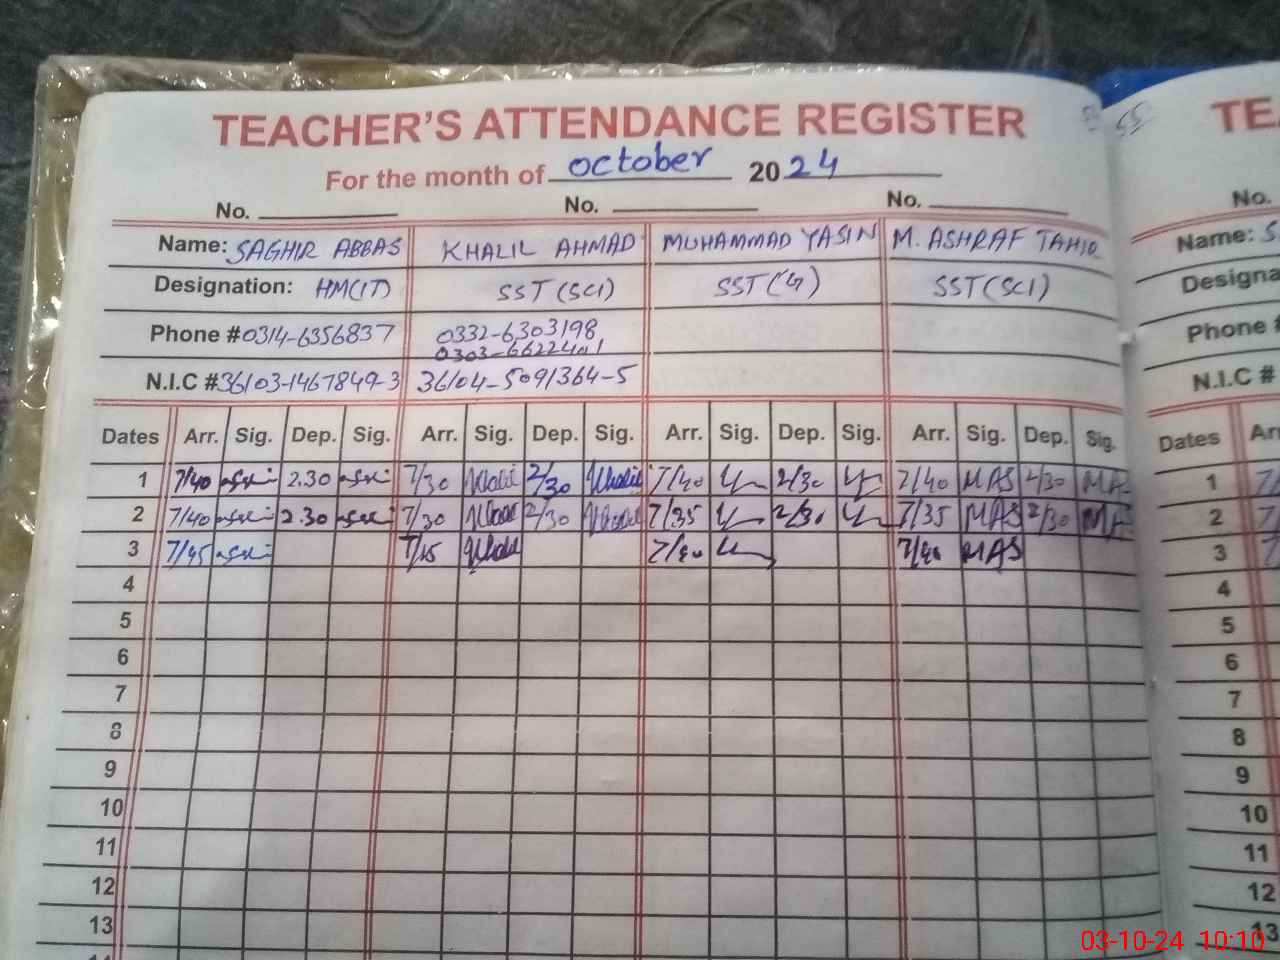 TEACHER'S ATTENDANCE REGISTER
For the month of October 2024
No. No. No.
Name: SAGHIR ABBAS KHALIL AHMAD MUHAMMAD YASIN M. ASHRAF TAHIR
Designation: HM(IT) SST(SCI) SST(G) SST(SCI)
Phone #0314-6356837 0332-6303198
N.I.C #36103-1467849-3 36104-5091364-5
Dates Arr. Sig. Dep. Sig. Arr. Sig. Dep. Sig. Arr. Sig. Dep. Sig. Arr. Sig. Dep. Sig.
1 7/40 2.30 7/30 Khalil 2/30 Khalil 7/40 2/30 7/40 MAS 2/30 MA
2 7/40 2.30 7/30 Khalil 2/30 Khalil 7/35 2/30 7/35 MAS 2/30 MA
3 7/45 Khalil 7/40 7/40 MAS
4
5
6
7
8
9
10
11
12
13
TEA
No.
Name: S
Designa
Phone #
N.I.C #
Dates Arr
1
2
3
4
5
6
7
8
9
10
11
12
13
03-10-24 10:10